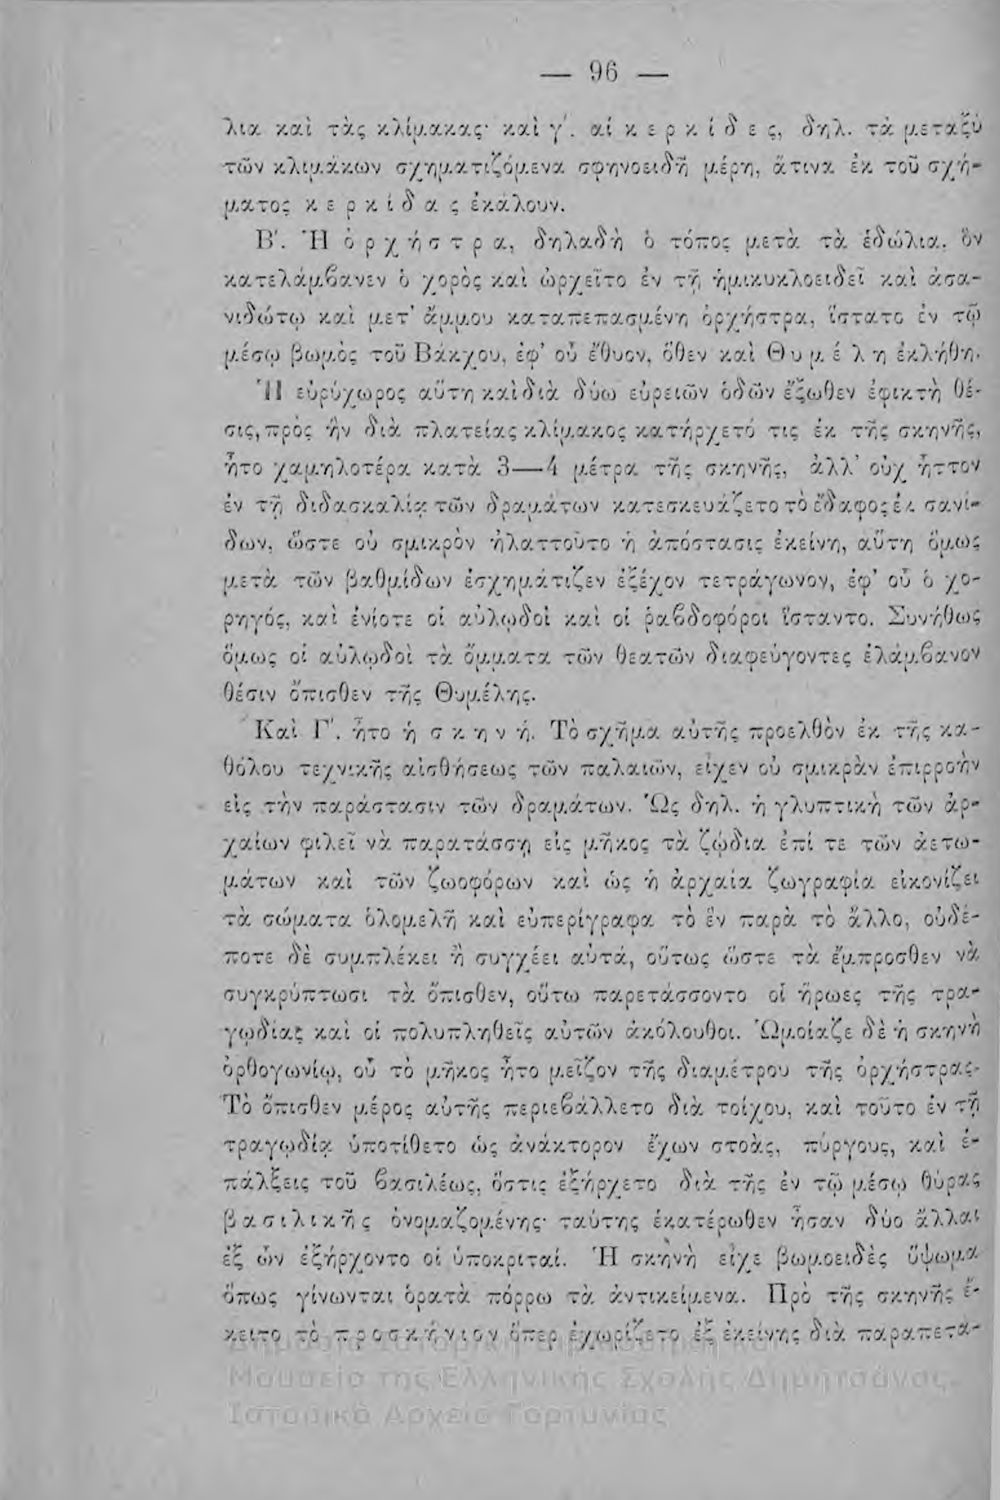 — 96 —
λια καὶ τὰς κλίμακας· καὶ γ΄. αἱ κ ε ρ κ ί δ ε ς, δηλ. τὰ μεταξὺ
τῶν κλιμάκων σχηματιζόμενα σφηνοειδῆ μέρη, ἅτινα ἐκ τοῦ σχή-
ματος κ ε ρ κ ί δ α ς ἐκάλουν.
Β΄. Ἡ ὀ ρ χ ή σ τ ρ α, δηλαδὴ ὁ τόπος μετὰ τὰ ἑδώλια, ὃν
κατελάμβανεν ὁ χορὸς καὶ ὠρχεῖτο ἐν τῇ ἡμικυκλοειδεῖ καὶ ἀσα-
νιδώτῳ καὶ μετ' ἄμμου καταπεπασμένῃ ὀρχήστρα, ἵστατο ἐν τῷ
μέσῳ βωμὸς τοῦ Βάκχου, ἐφ' οὗ ἔθυον, ὅθεν καὶ Θ υ μ έ λ η ἐκλήθη.
Ἡ εὐρύχωρος αὕτη καὶ διὰ δύω εὐρειῶν ὁδῶν ἔξωθεν ἐφικτὴ θέ-
σις, πρὸς ἣν διὰ πλατείας κλίμακος κατήρχετό τις ἐκ τῆς σκηνῆς,
ἦτο χαμηλοτέρα κατὰ 3—4 μέτρα τῆς σκηνῆς, ἀλλ' οὐχ ἧττον
ἐν τῇ διδασκαλίᾳ τῶν δραμάτων κατεσκευάζετο τὸ ἔδαφος ἐκ σανί-
δων, ὥστε οὐ σμικρὸν ἠλαττοῦτο ἡ ἀπόστασις ἐκείνη, αὕτη ὅμως
μετὰ τῶν βαθμίδων ἐσχημάτιζεν ἐξέχον τετράγωνον, ἐφ' οὗ ὁ χο-
ρηγός, καὶ ἐνίοτε οἱ αὐλῳδοὶ καὶ οἱ ῥαβδοφόροι ἵσταντο. Συνήθως
ὅμως οἱ αὐλῳδοὶ τὰ ὄμματα τῶν θεατῶν διαφεύγοντες ἐλάμβανον
θέσιν ὄπισθεν τῆς Θυμέλης.
Καὶ Γ΄. ἦτο ἡ σ κ η ν ή. Τὸ σχῆμα αὐτῆς προελθὸν ἐκ τῆς κα-
θόλου τεχνικῆς αἰσθήσεως τῶν παλαιῶν, εἶχεν οὐ σμικρὰν ἐπιρροὴν
εἰς τὴν παράστασιν τῶν δραμάτων. Ὡς δηλ. ἡ γλυπτικὴ τῶν ἀρ-
χαίων φιλεῖ νὰ παρατάσσῃ εἰς μῆκος τὰ ζῴδια ἐπί τε τῶν ἀετω-
μάτων καὶ τῶν ζωοφόρων καὶ ὡς ἡ ἀρχαία ζωγραφία εἰκονίζει
τὰ σώματα ὁλομελῆ καὶ εὐπερίγραφα τὸ ἓν παρὰ τὸ ἄλλο, οὐδέ-
ποτε δὲ συμπλέκει ἢ συγχέει αὐτά, οὕτως ὥστε τὰ ἔμπροσθεν νὰ
συγκρύπτωσι τὰ ὄπισθεν, οὕτω παρετάσσοντο οἱ ἥρωες τῆς τρα-
γῳδίας καὶ οἱ πολυπληθεῖς αὐτῶν ἀκόλουθοι. Ὡμοίαζε δὲ ἡ σκηνὴ
ὀρθογωνίῳ, οὗ τὸ μῆκος ἦτο μεῖζον τῆς διαμέτρου τῆς ὀρχήστρας·
Τὸ ὄπισθεν μέρος αὐτῆς περιεβάλλετο διὰ τοίχου, καὶ τοῦτο ἐν τῇ
τραγῳδίᾳ ὑποτίθετο ὡς ἀνάκτορον ἔχων στοάς, πύργους, καὶ ἐ-
πάλξεις τοῦ βασιλέως, ὅστις ἐξήρχετο διὰ τῆς ἐν τῷ μέσῳ θύρας
β α σ ι λ ι κ ῆ ς ὀνομαζομένης· ταύτης ἑκατέρωθεν ἦσαν δύο ἄλλαι
ἐξ ὧν ἐξήρχοντο οἱ ὑποκριταί. Ἡ σκηνὴ εἶχε βωμοειδὲς ὕψωμα
ὅπως γίνωνται ὁρατὰ πόρρω τὰ ἀντικείμενα. Πρὸ τῆς σκηνῆς ἔ-
κειτο τὸ π ρ ο σ κ ή ν ι ο ν ὅπερ ἐχωρίζετο ἐξ ἐκείνης διὰ παραπετά-
Δημόσια Ιστορική Βιβλιοθήκη και
Μουσείο της Ελληνικής Σχολής Δημητσάνας.
Ιστορικό Αρχείο Γορτυνίας